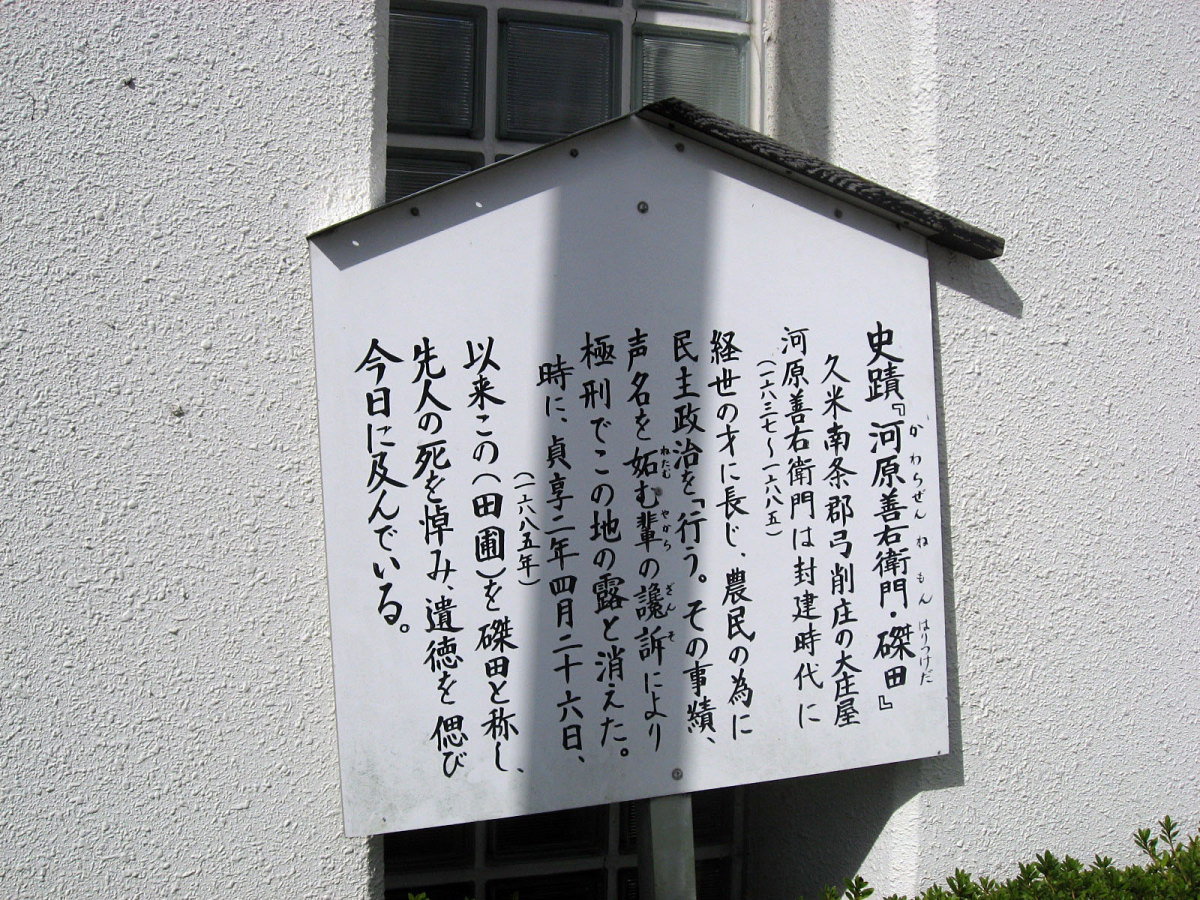 史蹟『河原善右衛門・磔田』
かわらぜんねもん はりつけだ
久米南条郡弓削庄の大庄屋
河原善右衛門は封建時代に
(一六三七〜一六八五)
経世の才に長じ、農民の為に
民主政治を「行う。その事績、
声名を妬む輩の讒訴により
ねたむ やから ざんそ
極刑でこの地の露と消えた。
時に、貞享二年四月二十六日、
(一六八五年)
以来この(田圃)を磔田と称し、
先人の死を悼み、遺徳を偲び
今日に及んでいる。